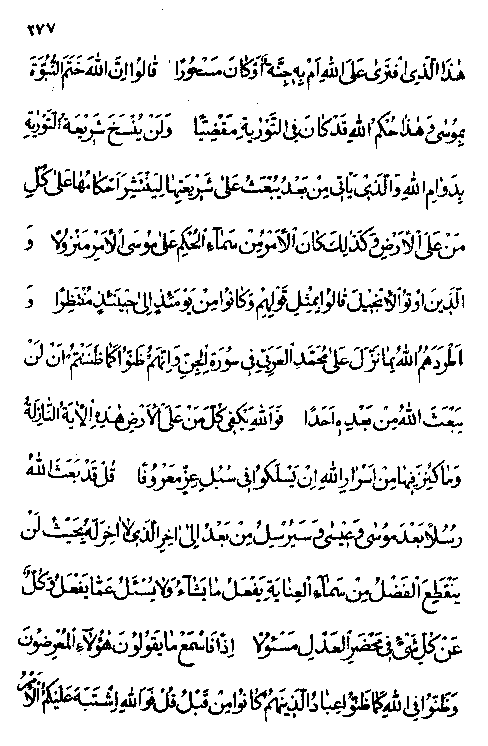 ٢٧٧
هٰذا الّذی افتری علی اللّه ام به جنّة او کان مسحورا قالوا انّ اللّه ختم النّبوّة
بموسی و هذا حکم اللّه قد کان فی التّوریة مقضیّا و لن ینسخ شریعة التّوریة
بدوام اللّه و الّذی یأتی من بعد یبعث علی شریعتها لینتشر احکامها علی کلّ
من علی الأرض و کذلک کان الأمر من سمآء الحکم علی موسی الأمر منزولا و
الّذین اوتوا الانجیل قالوا بمثل قولهم و کانوا من یومئذ الی حینئذ منتظرا و
اطردهم اللّه بما نزّل علی محمّد العربیّ فی سورة الجنّ و انّهم ظنّوا کما ظننتم ان لن
یبعث اللّه من بعده احدا فو اللّه یکفی کلّ من علی الأرض هذه الآیة النّازلة
و ما کنز فیها من اسرار اللّه ان یسلکوا فی سبل عزّ معروفا قل قد بعث اللّه
رسلاً بعد موسی و عیسی و سیرسل من بعد الی آخر الّذی لا آخر له بحیث لن
ینقطع الفضل من سمآء العنایة یفعل ما یشآء و لا یسئل عمّا یفعل و کلّ
عن کلّ شیء فی محضر العدل مسئولا اذاً فاسمع ما یقولون هؤلآء المعرضون
و ظنّوا فی اللّه کما ظنّوا عباد الّذینهم کانوا من قبل قل فو اللّه اشتبه علیکم الأمر